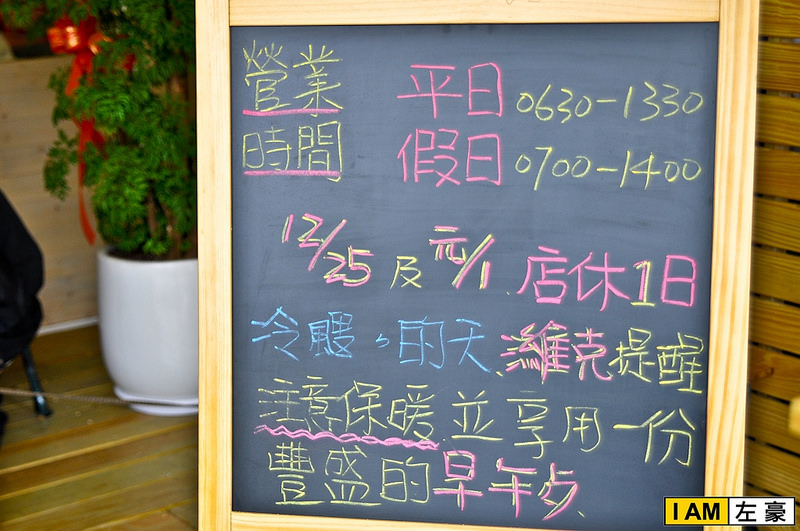 營業 平日 0630-1330
時間 假日 0700-1400
12/25 及 元/1 店休1日
冷颼ㄋ的天 濰克提醒
注意保暖並享用一份
豐盛的早午歺
I AM 左豪